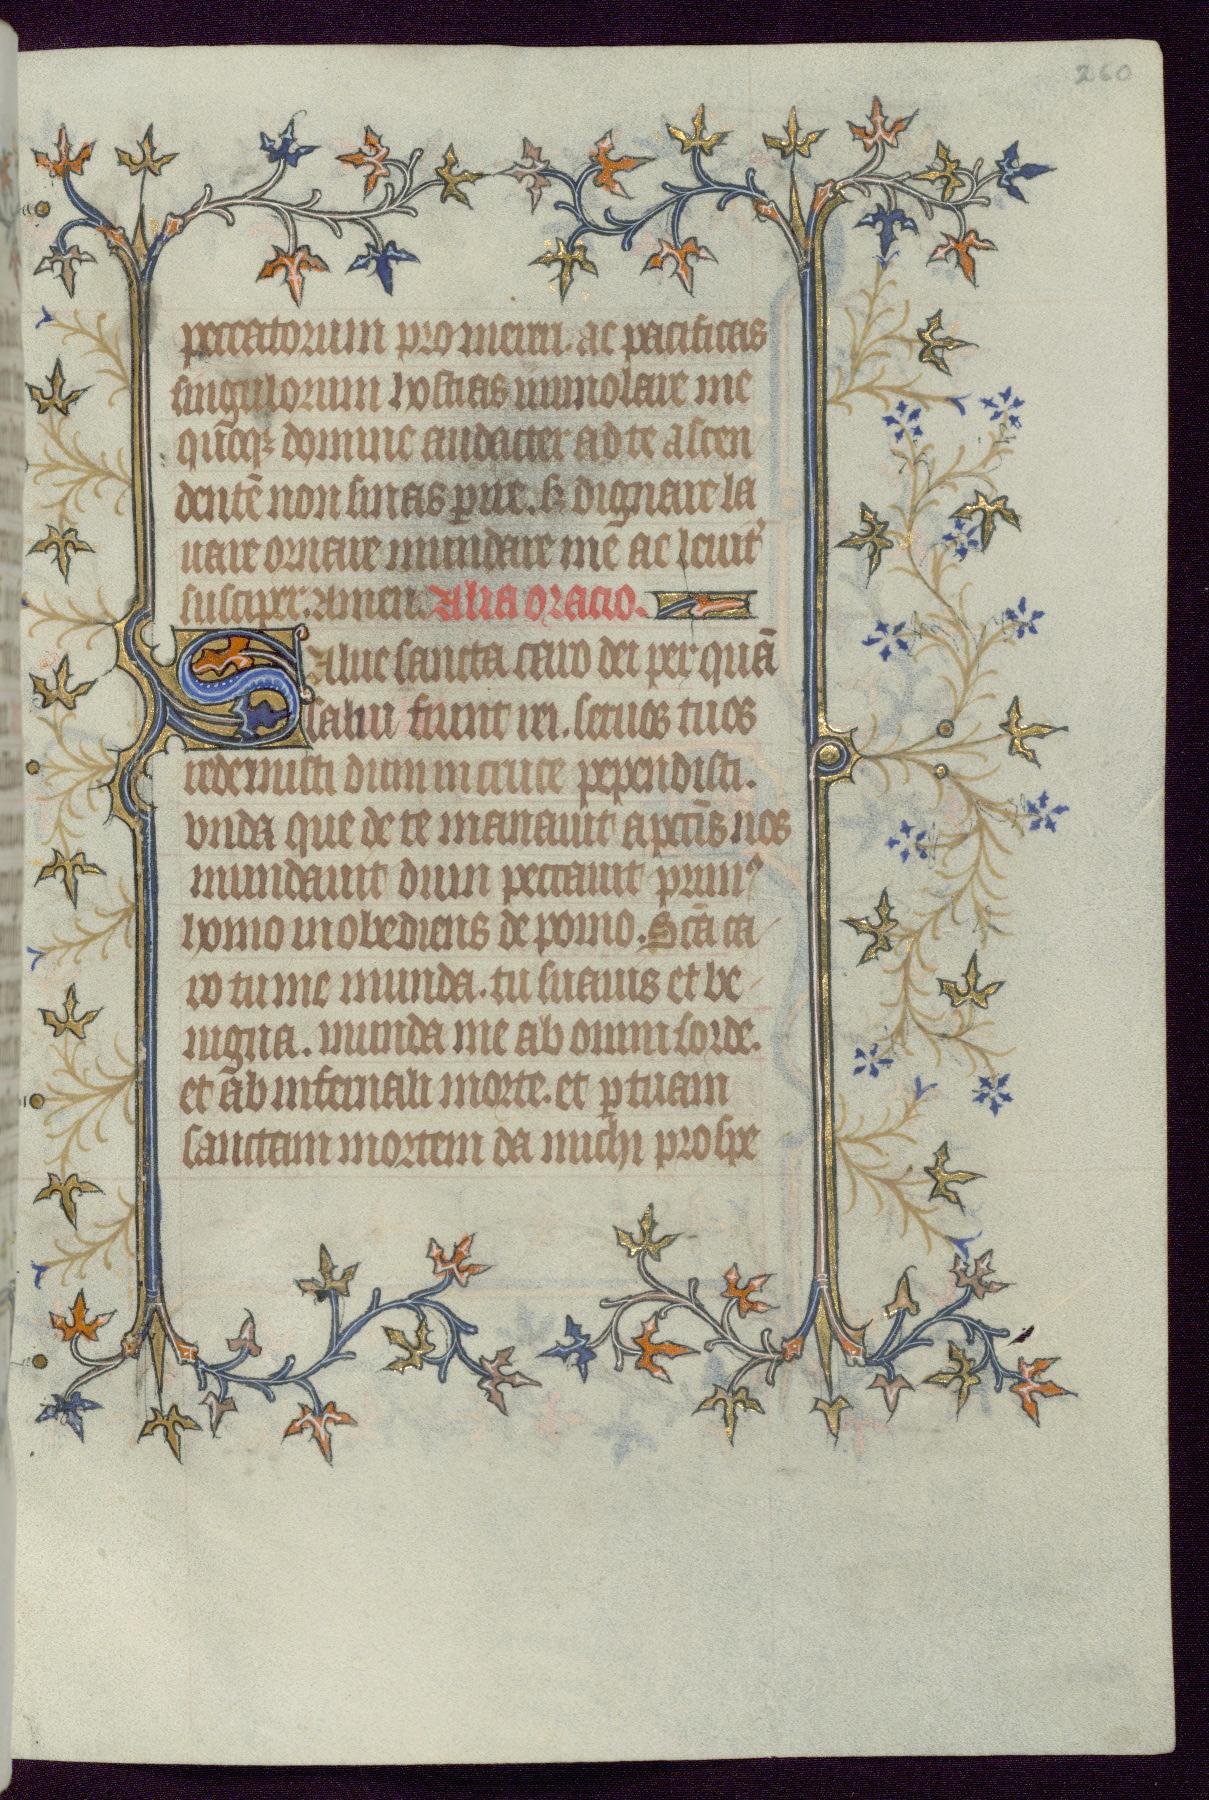 260
peccatorum promereri. ac pacificas
singulorum hostias immolare me
qūcqꝫ domine audacter ad te ascen
dentē non sinas ꝑire. sꝫ dignare la
uare ornare mundare mē ac leuit᷑
suscipere. Amen. Alia oracio.
Salue sancta caro dei per quā
salui fiunt rei. seruos tuos
redemisti dum in cruce pependisti.
vnda que de te manauit a pctīs nos
mundauit dum peccauit primꝰ
homo inobediens de pomo. Scā ca
ro tu me munda. tu suauis et be
nigna. munda me ab omni sorde.
et ab infernali morte. et ꝑ tuam
sanctam mortem da michi prospe